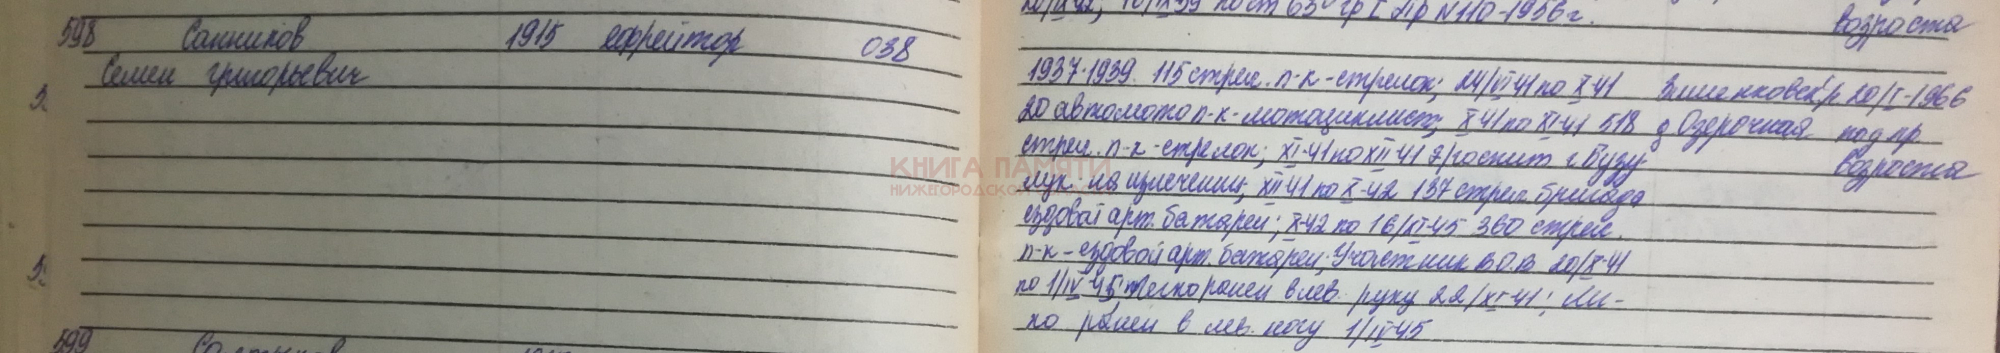 598 Санников 1915 ефрейтор 038
Семен Григорьевич
20/IX-42; 10/IX-59 по ст 65 гр I Пр N110-1956 г. возроста
1937-1939. 115 стрел. п-к-стрелок; 24/VI 41 по X-41 р 20/I-1966
20 автомото п-к-мотоциклист; X 41 по XI-41 518 д Озерочная под пр
стрел. п-к-стрелок; XI-41 по XII 41 э/госпит г. Бузу возроста
лук на излечении; XII 41 по X-42 137 стрел. бригада
ездовой арт. батареи; X-42 по 16/XI-45 360 стрел.
п-к-ездовой арт. батареи; Участник В.О.В 20/X-41
по 1/IV-45; легко ранен в лев. руку 22/XI-41; Лег-
ко ранен в лев. ногу 1/IV-45
599
КНИГА ПАМЯТИ